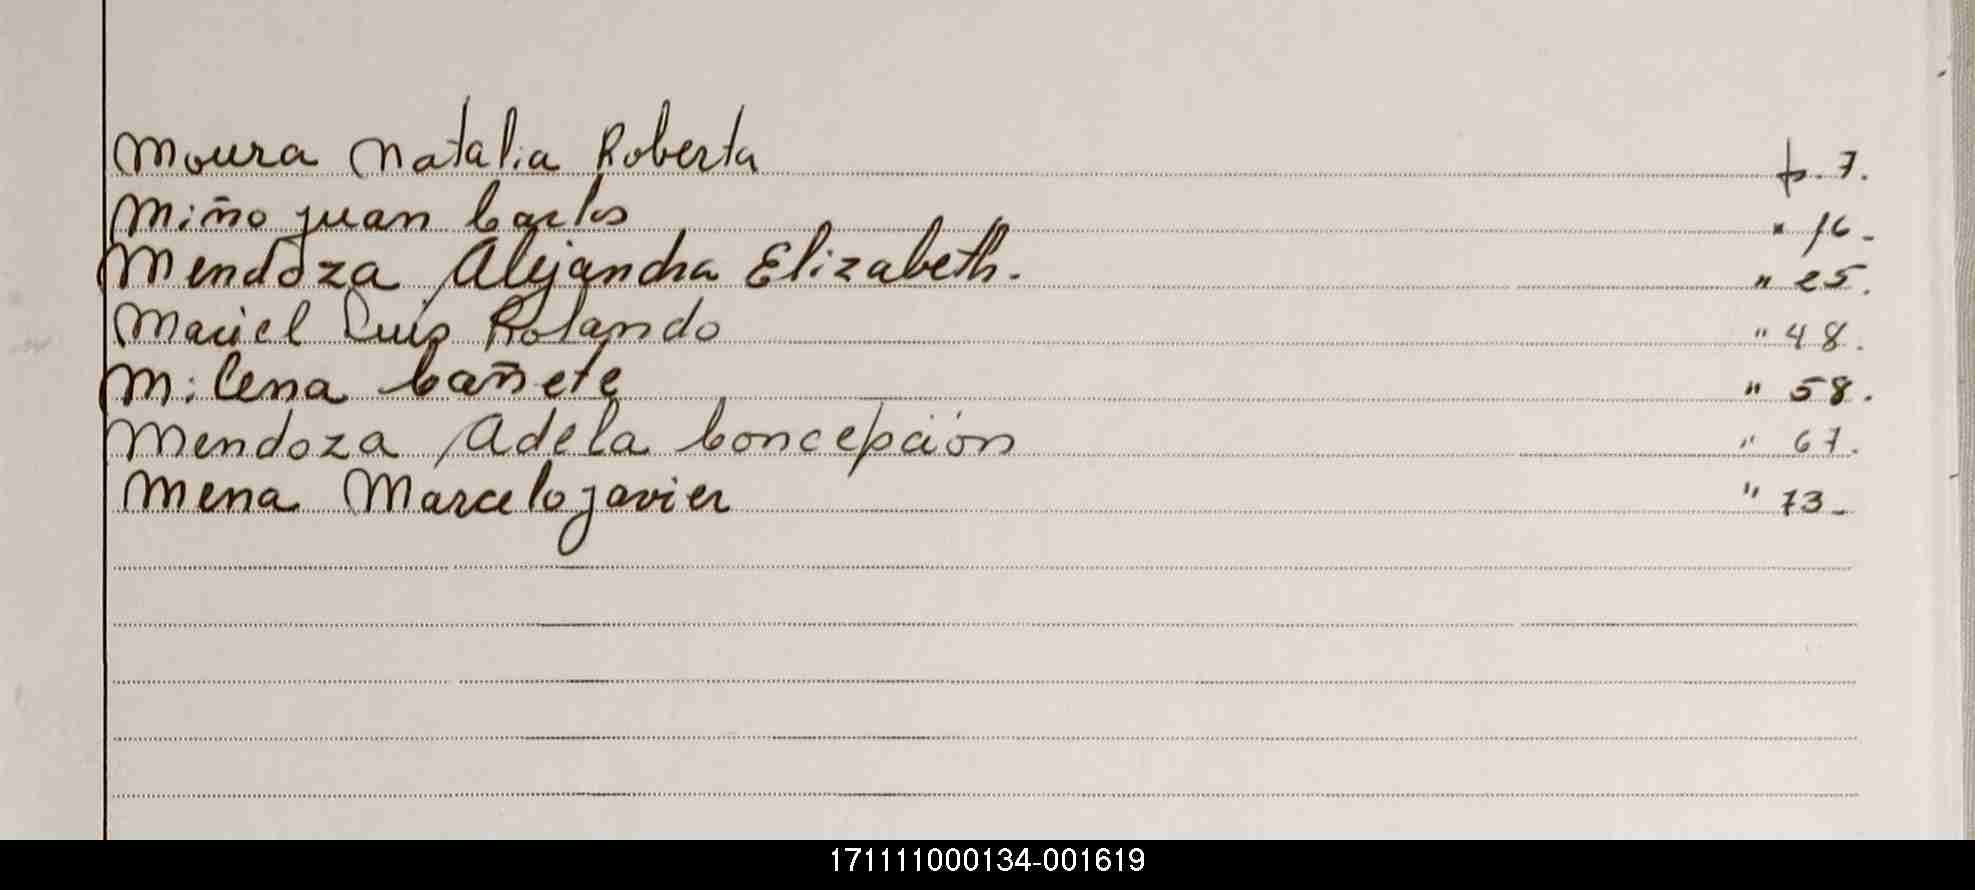 Moura Natalia Roberta p. 7.
Miño Juan Carlos " 16.
Mendoza Alejandra Elizabeth. " 25.
Maciel Luis Rolando " 48.
Milena Cañete " 58.
Mendoza Adela Concepción " 67.
Mena Marcelo Javier " 73.
171111000134-001619